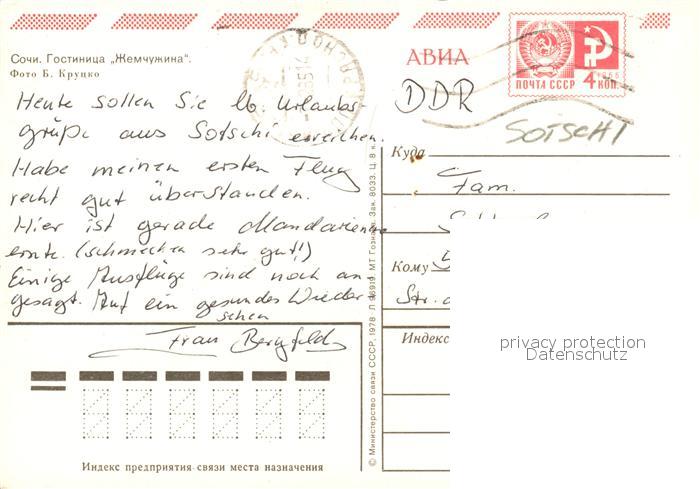 Сочи. Гостиница „Жемчужина“.
Фото Б. Круцко
АВИА
ПОЧТА СССР 4 КОП.
1966
DDR
SOTSCHI
Heute sollen Sie lb. Urlaubs-
grüße aus Sotschi erreichen.
Habe meinen ersten Flug
recht gut überstanden.
Hier ist gerade Mandarinen
ernte. (schmecken sehr gut!)
Einige Ausflüge sind noch an
gesagt. Auf ein gesundes Wieder-
sehen
Frau Bergfeld
Куда
Fam.
Кому
Str.
Индекс
privacy protection
Datenschutz
© Министерство связи СССР, 1978 Л 96919. МТ Гознака. Зак. 8033. Ц. 8 к.
Индекс предприятия связи места назначения